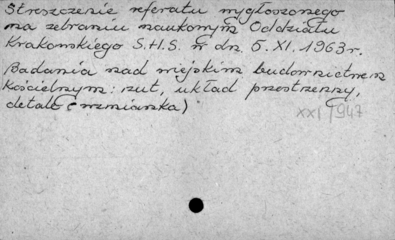 Streszczenie referatu wygłoszonego
na zebraniu naukowym Oddziału
Krakowskiego S.H.S. w dn. 5.XI.1963r.
Badania nad wiejskim budownictwem
kościelnym: rzut, układ przestrzenny,
detale (wzmianka)
XXI 947